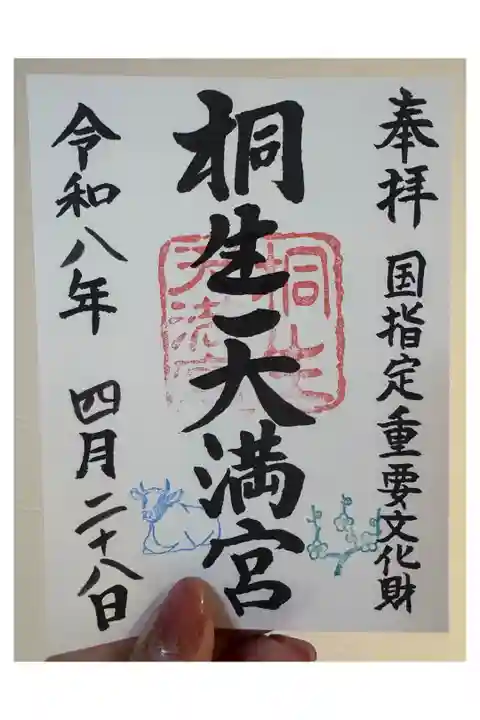 奉拝 国指定重要文化財
桐生天満宮
令和八年 四月二十八日